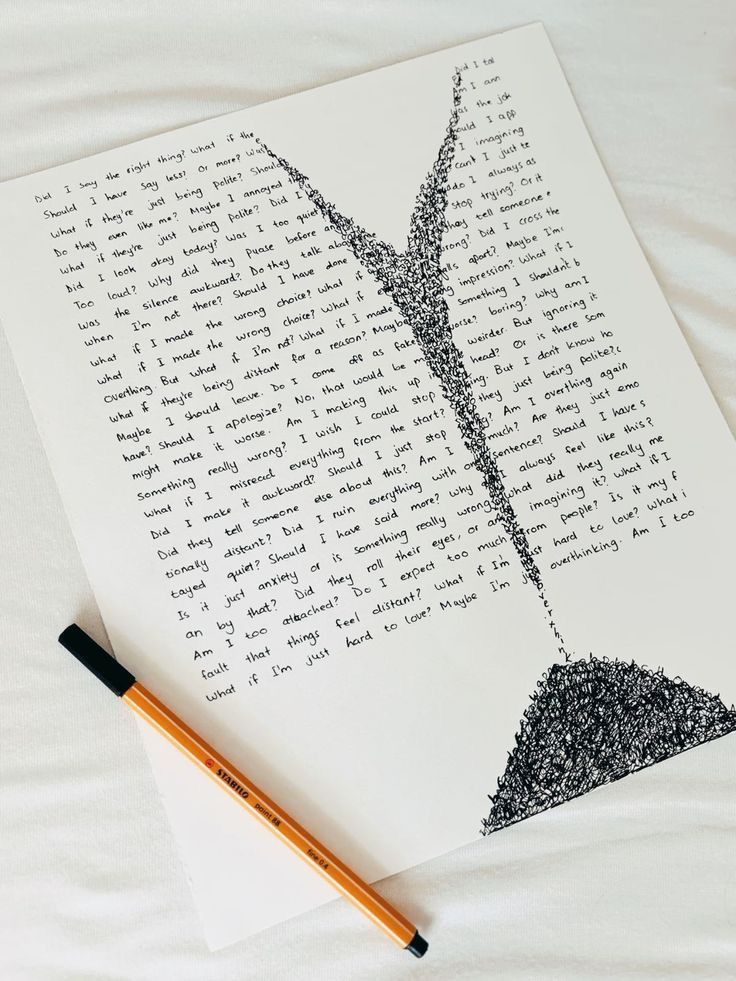 Did I say the right thing? What if the Did I tal
Should I have say less? Or more? Was Am I ann
What if they're just being polite? Should was the jok
Do they even like me? Maybe I annoyed ould I app
What if they're just being polite? Did I I imagining
Did I look okay today? Was I too quiet cant I just te
Too loud? Why did they puase before an do I always as
Was the silence awkward? Do they talk stop trying? Or it
when I'm not there? Should I have done hey tell someone e
what if I made the wrong choice? What if wrong? Did I cross the
What if I made the wrong choice? What if alls apart? Maybe I'm
Overthing. But what if I'm not? What if I made ng impression? What if I
what if they're being distant for a reason? Maybe something I shouldnt b
Maybe I should leave. Do I come off as fake worse? boring? Why am I
have? Should I apologize? No, that would be weirder. But ignoring it
might make it worse. Am I making this up head? Or is there som
Something really wrong? I wish I could stop ng. But I don't know ho
what if I misread everything from the start? they just being polite?
Did I make it awkward? Should I just stop Am I overthing again
Did they tell someone else about this? Am I much? Are they just emo
tionally distant? Did I ruin everything with one sentence? Should I have s
tayed quiet? Should I have said more? why I always feel like this?
Is it just anxiety or is something really wrong what did they really me
an by that? Did they roll their eyes, or am imagining it? what if I
Am I too attached? Do I expect too much from people? Is it my f
fault that things feel distant? What if I'm just hard to love? What i
what if I'm just hard to love? Maybe I'm just overthinking. Am I too
overthink.
STABILO point 88 fine 0.4